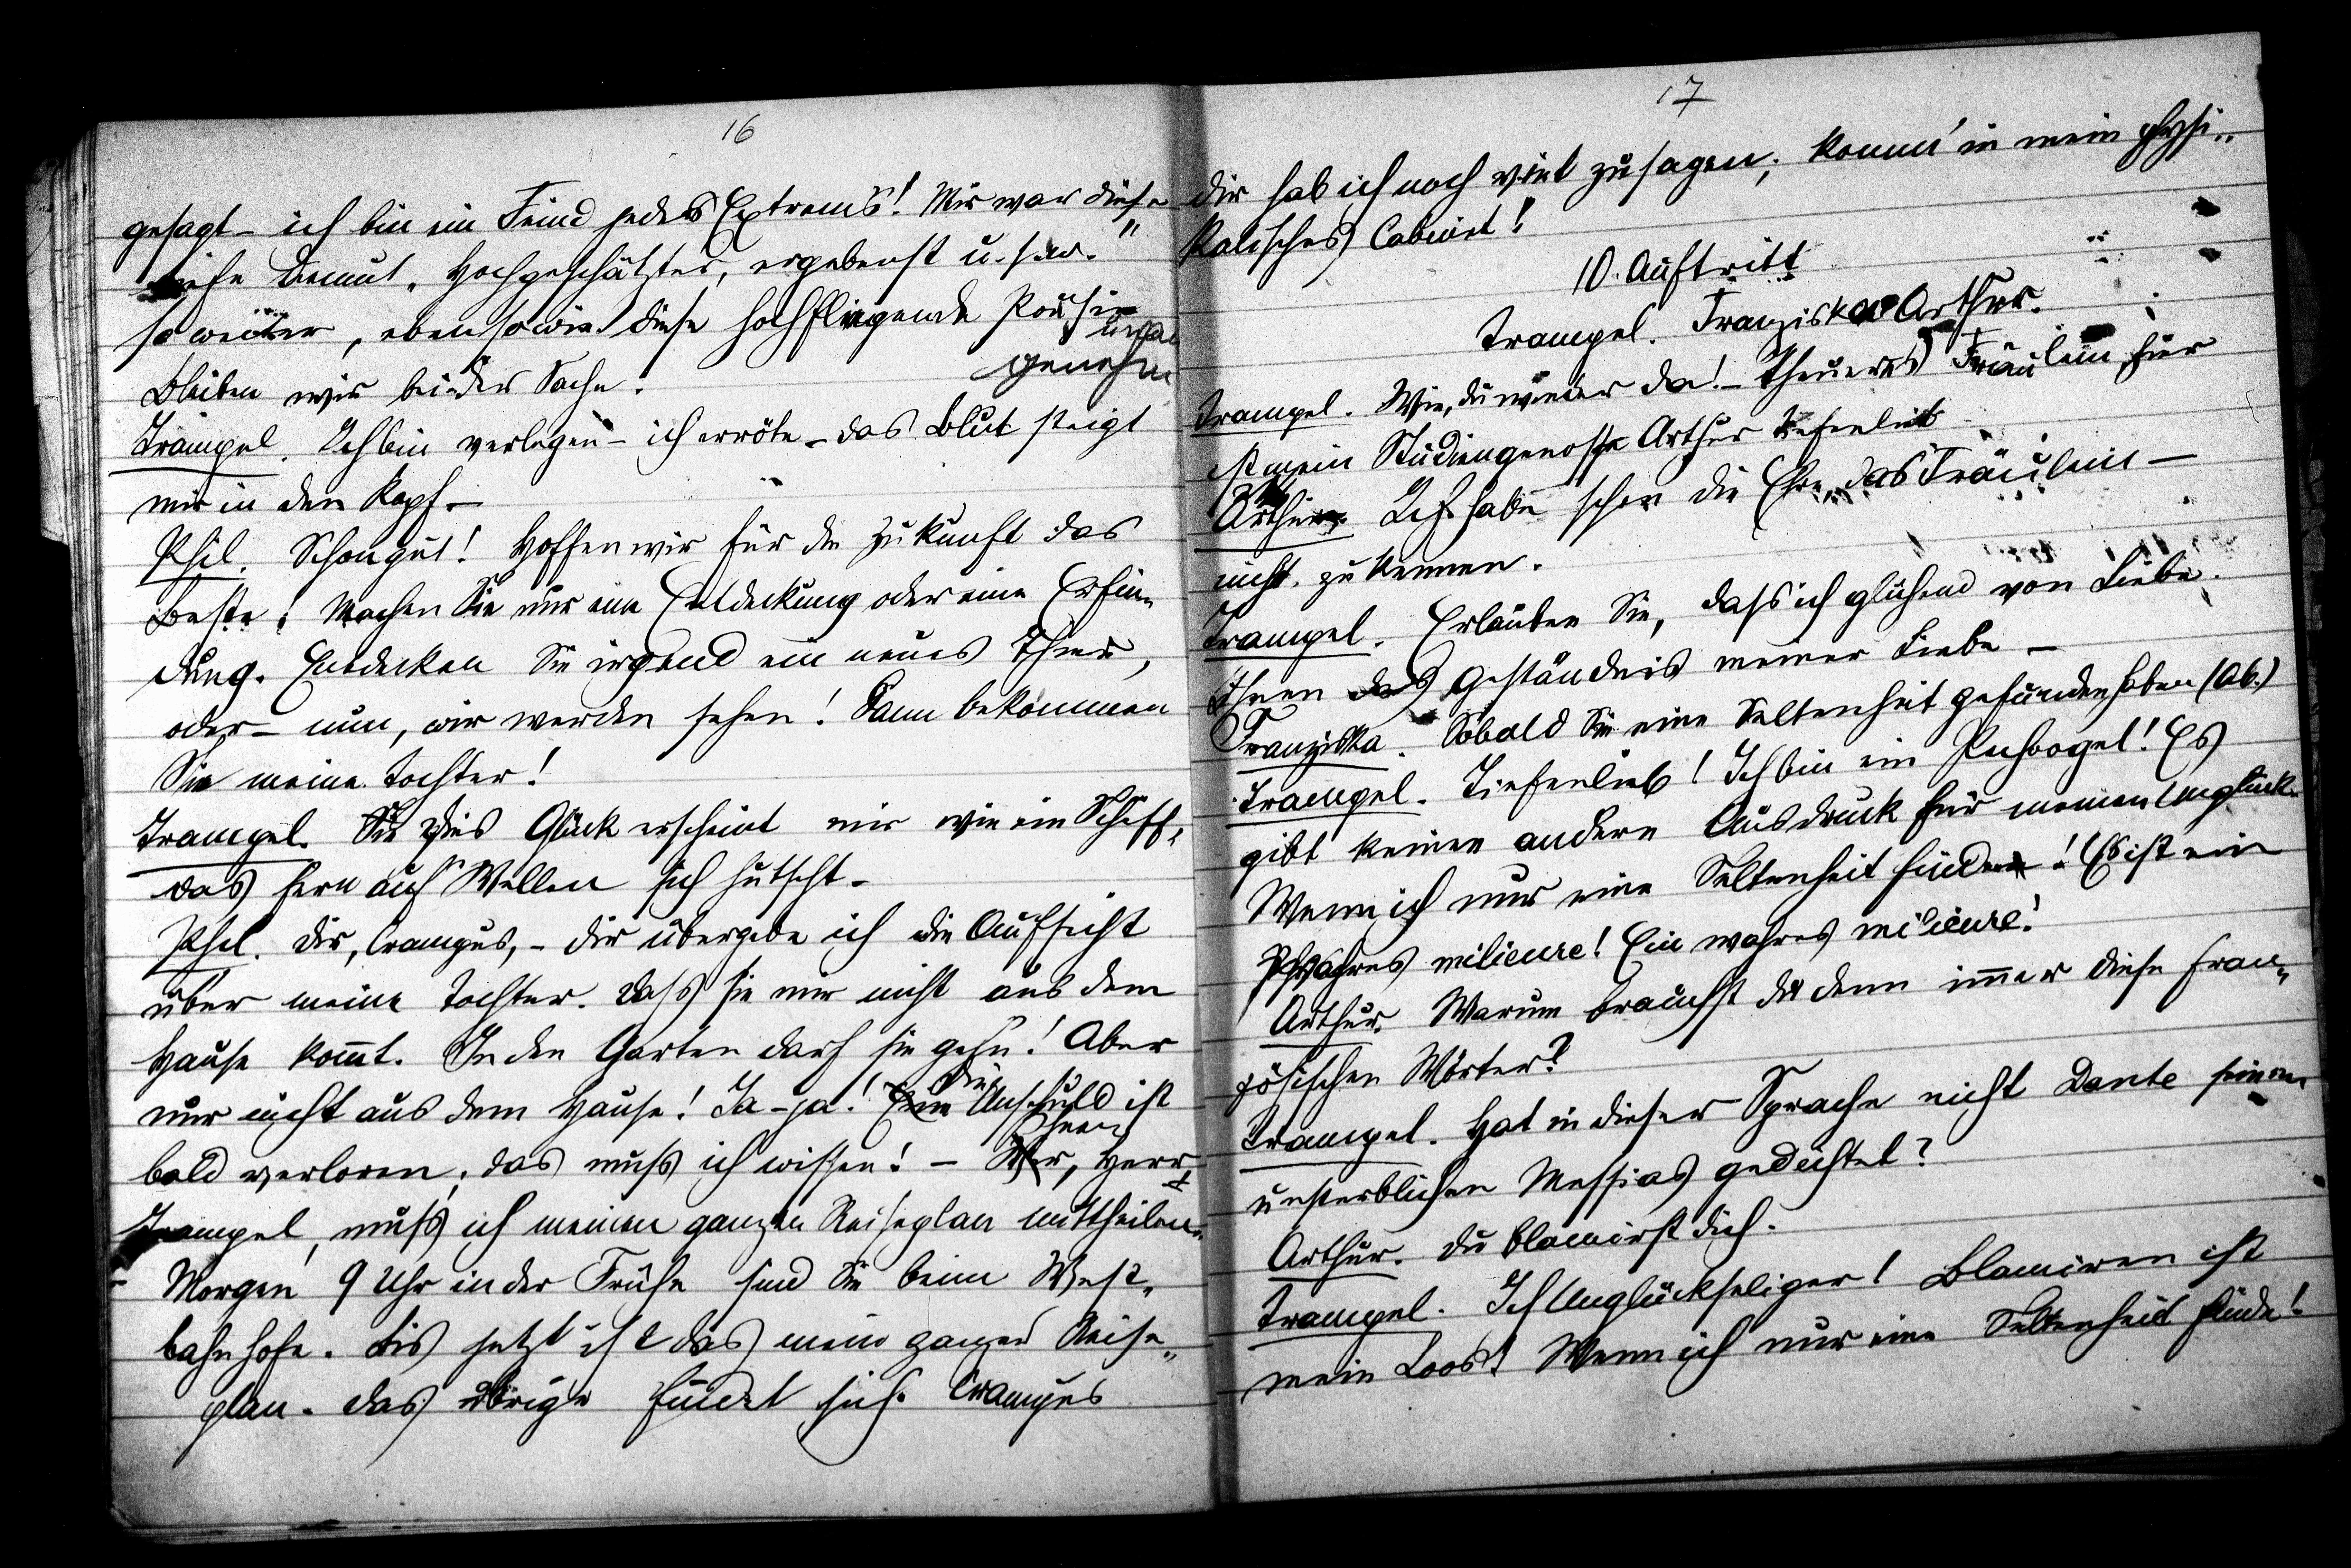 16
gesagt – ich bin ein Feind jedes Extrems! Mir war diese
tiefe Demut, Hochgeschätzter, ergebenst u. s. w."
so weiter, ebenso wie diese hochfliegende Poesie
unan
genehm
Bleiben wir bei der Sache.
Trampel. Ich bin verlegen – ich erröte – das Blut steigt
mir in den Kopf –
Phil. Schon gut! Hoffen wir für die Zukunft das
Beste. Machen Sie nur eine Entdeckung oder eine Erfin-
dung. Entdecken Sie irgend ein neues Thier,
oder – nun, wir werden sehen! Dann bekommen
Sie meine Tochter!
Trampel. Dies Glück erscheint mir wie ein Schiff,
das fern auf Wellen sich hutscht –
Phil. Dir, Crampus, – dir übergebe ich die Aufsicht
über meine Tochter. Dass sie mir nicht aus dem
Hause kommt. In den Garten darf sie gehn! Aber
nur nicht aus dem Hause! Ja – ja! Die Unschuld ist
Ihnen
bald verloren; das muss ich wissen! – Herr
Trampel, muss ich meinen ganzen Reiseplan mittheilen.
Morgen 9 Uhr in der Frühe sind Sie beim West-
bahnhofe. Bis jetzt ist das mein ganzer Reise-
plan. Das übrige findet sich. Crampus
17
dir hab ich noch viel zu sagen; komm' in mein physi-
kalisches Cabinet!
10. Auftritt
Trampel. Franziska Arthur.
Trampel. Wie, du wieder da! – Theueres Fräulein, hier
ist mein Studiengenosse Arthur Tiefenlieb
Arthur. Ich habe schon die Ehre, das Fräulein –
nicht zu kennen.
Trampel. Erlauben Sie, dass ich glühend von Liebe
Ihnen das Geständnis meiner Liebe –
Franziska. Sobald Sie eine Seltenheit gefunden haben (Ab.)
Trampel. Tiefenlieb! Ich bin ein Pechvogel! Es
gibt keinen andern Ausdruck für meinen Unglück.
Wenn ich nur eine Seltenheit finde! Es ist ein
wahres milieure! Ein wahres milieure!
Arthur. Warum brauchst du denn immer diese fran-
zösischen Wörter?
Trampel. Hat in dieser Sprache nicht Dante seinen
unsterblichen Messias gedichtet?
Arthur. Du blamirst dich.
Trampel. Ich Unglückseliger! Blamiren ist
mein Loos! Wenn ich nur eine Seltenheit finde!